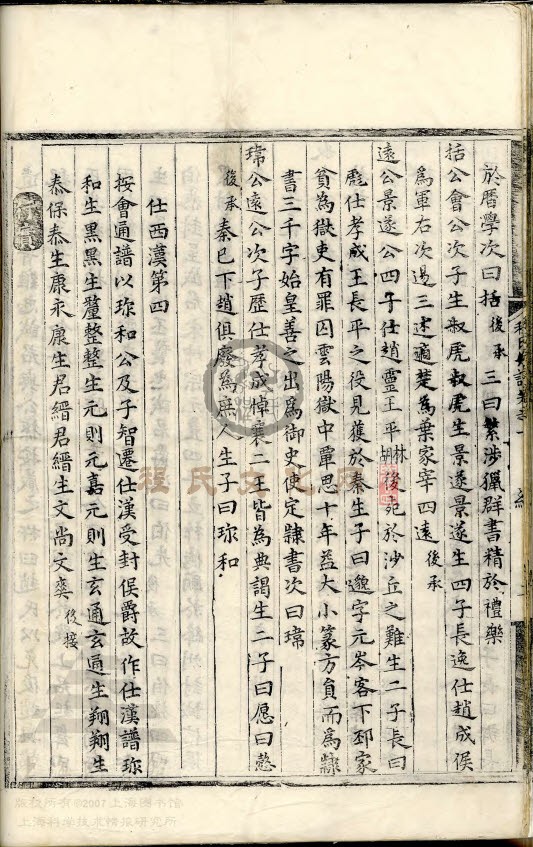 於曆學次曰括後承三曰繁涉獵群書精於禮樂
括公會公次子生叔虎叔虎生景遂景遂生四子長逸仕趙成侯
為軍右次遏三述適楚為葉家宰四遠後承
遠公景遂公四子仕趙靈王平林胡後死於沙丘之難生二子長曰
彪仕孝成王長平之役見獲於秦生子曰邈字元岑客下邳家
貧為獄吏有罪囚雲陽獄中覃思十年益大小篆方負而為隸
書三千字始皇善之出為御史使定隸書次曰瑺
瑺公遠公次子歷仕孝成悼襄二王皆為典謁生二子曰愿曰慤
後承秦已下趙俱廢為庶人生子曰珎和
仕西漢第四
按會通譜以珎和公及子智遷仕漢受封侯爵故作仕漢譜珎
和生黑黑生釐整整生元則元嘉元則生玄通玄通生翔翔生
恭保恭生康永康生君縉君縉生文尚文奕後接
程氏文化网
版权所有©2007上海图书馆
上海科学技术情报研究所